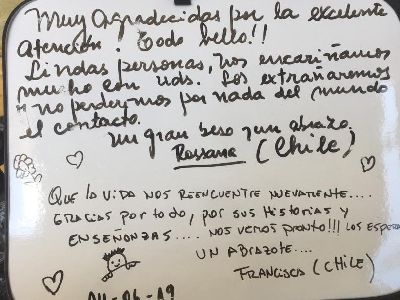 Muy agradecidas por la excelente
atención. Todo bello!!
Lindas personas, nos encariñamos
mucho con uds. Los extrañaremos
y no perdermos por nada del mundo
el contacto.
Un gran beso y un abrazo.
Rossana (Chile)
QUE LA VIDA NOS REENCUENTRE NUEVAMENTE....
GRACIAS POR TODO, POR SUS HISTORIAS Y
ENSEÑANZAS.... NOS VEMOS PRONTO!!! LOS ESPERA
UN ABRAZOTE....
FRANCISCA (CHILE)
04-06-19